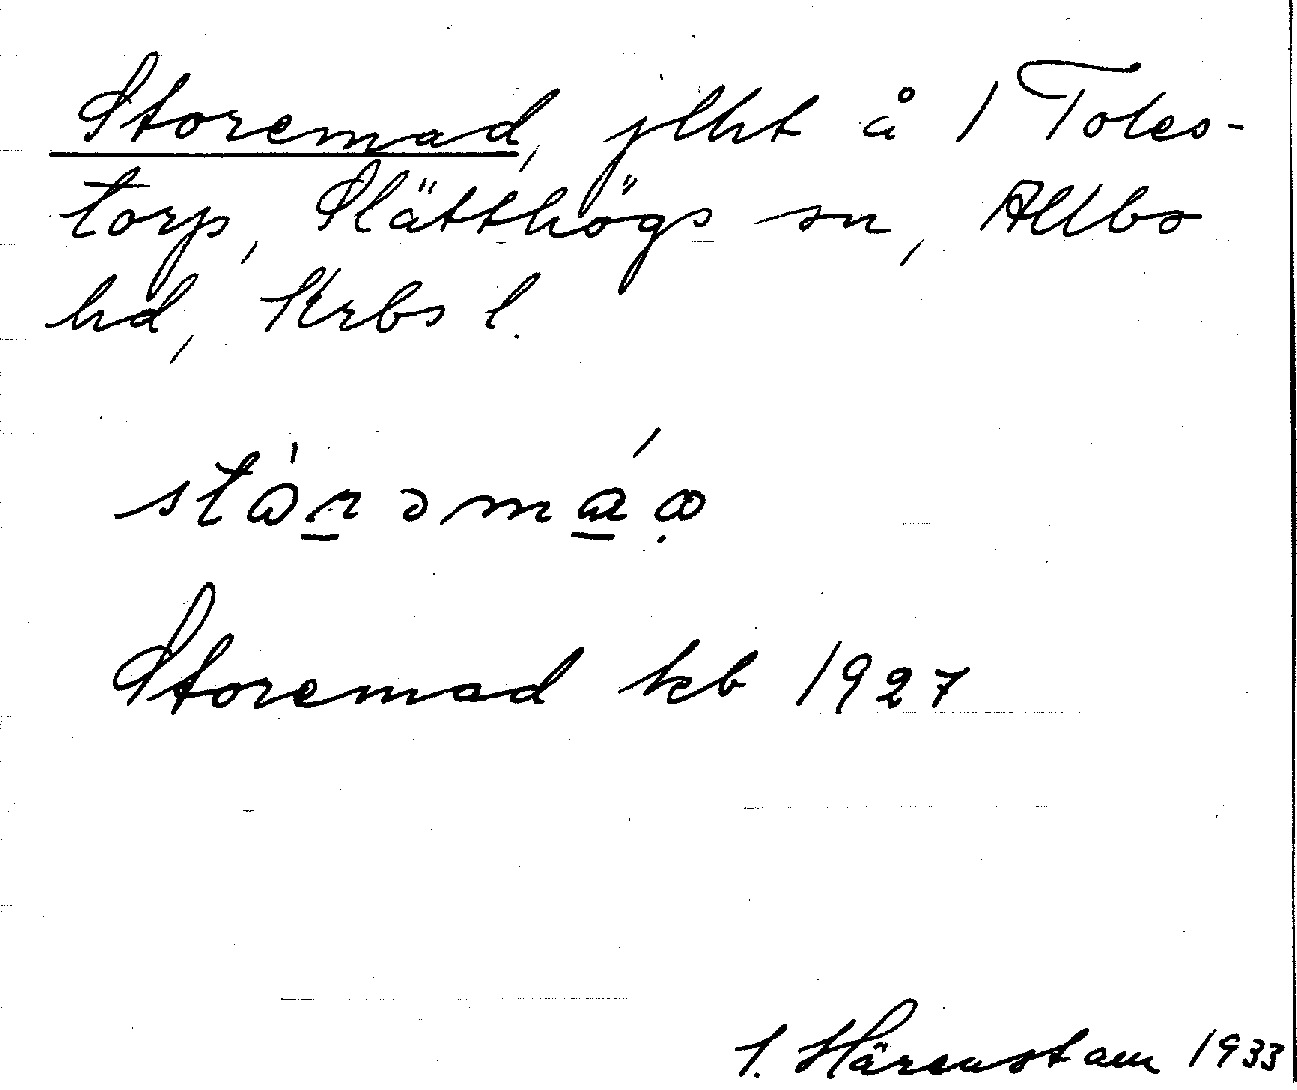 Storemad, jlht å 1 Toles-
torp, Slätthögs sn, Allbo
hd, Krbs l.
Storemad kb 1927
Härenstam 1933